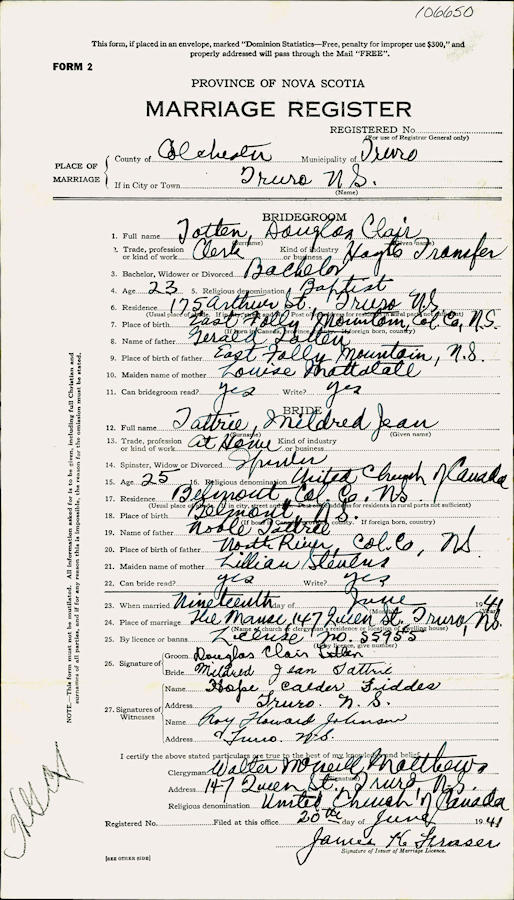 106650
This form, if placed in an envelope, marked "Dominion Statistics—Free, penalty for improper use $300," and
properly addressed will pass through the Mail "FREE".
FORM 2
PROVINCE OF NOVA SCOTIA
MARRIAGE REGISTER
REGISTERED No.
(For use of Registrar General only)
PLACE OF MARRIAGE
County of Colchester Municipality of Truro
If in City or Town Truro N.S.
(Name)
BRIDEGROOM
1. Full name Totten, Douglas Clair
(Surname) (Given name)
2. Trade, profession or kind of work Clerk Kind of industry or business Transfer
3. Bachelor, Widower or Divorced Bachelor
4. Age 23 5. Religious denomination Baptist
6. Residence 175 Arthur St., Truro N.S.
7. Place of birth East Folly Mountain, Col. Co, N.S.
8. Name of father Gerald Totten
9. Place of birth of father East Folly Mountain, N.S.
10. Maiden name of mother Louise Mattatall
11. Can bridegroom read? yes Write? yes
BRIDE
12. Full name Tattrie, Mildred Jean
(Surname) (Given name)
13. Trade, profession or kind of work At Home Kind of industry or business
14. Spinster, Widow or Divorced Spinster
15. Age 25 16. Religious denomination United Church of Canada
17. Residence Belmont, Col. Co. N.S.
18. Place of birth Belmont, N.S.
19. Name of father Noble Tattrie
20. Place of birth of father North River, Col. Co, N.S.
21. Maiden name of mother Lillian Stevens
22. Can bride read? yes Write? yes
23. When married Nineteenth day of June 1941
24. Place of marriage The Manse, 147 Queen St. Truro, N.S.
25. By licence or banns License No. 55955
(If by licence, give number)
26. Signature of
Groom Douglas Clair Totten
Bride Mildred Jean Tattrie
27. Signatures of Witnesses
Name Hope Calder Fiddes
Address Truro. N.S.
Name Roy Howard Johnson
Address Truro. N.S.
I certify the above stated particulars are true to the best of my knowledge and belief.
Clergyman Walter McNeill Matthews
(Signature)
Address 147 Queen St., Truro, N.S.
Religious denomination United Church of Canada
Registered No. Filed at this office 20th day of June 1941
James K. Fraser
Signature of Issuer of Marriage Licence.
[SEE OTHER SIDE]
NOTE.—This form must not be mutilated. All information asked for is to be given, including full Christian and
surnames of all parties, and if for any reason this is impossible, the reason for the omission must be stated.